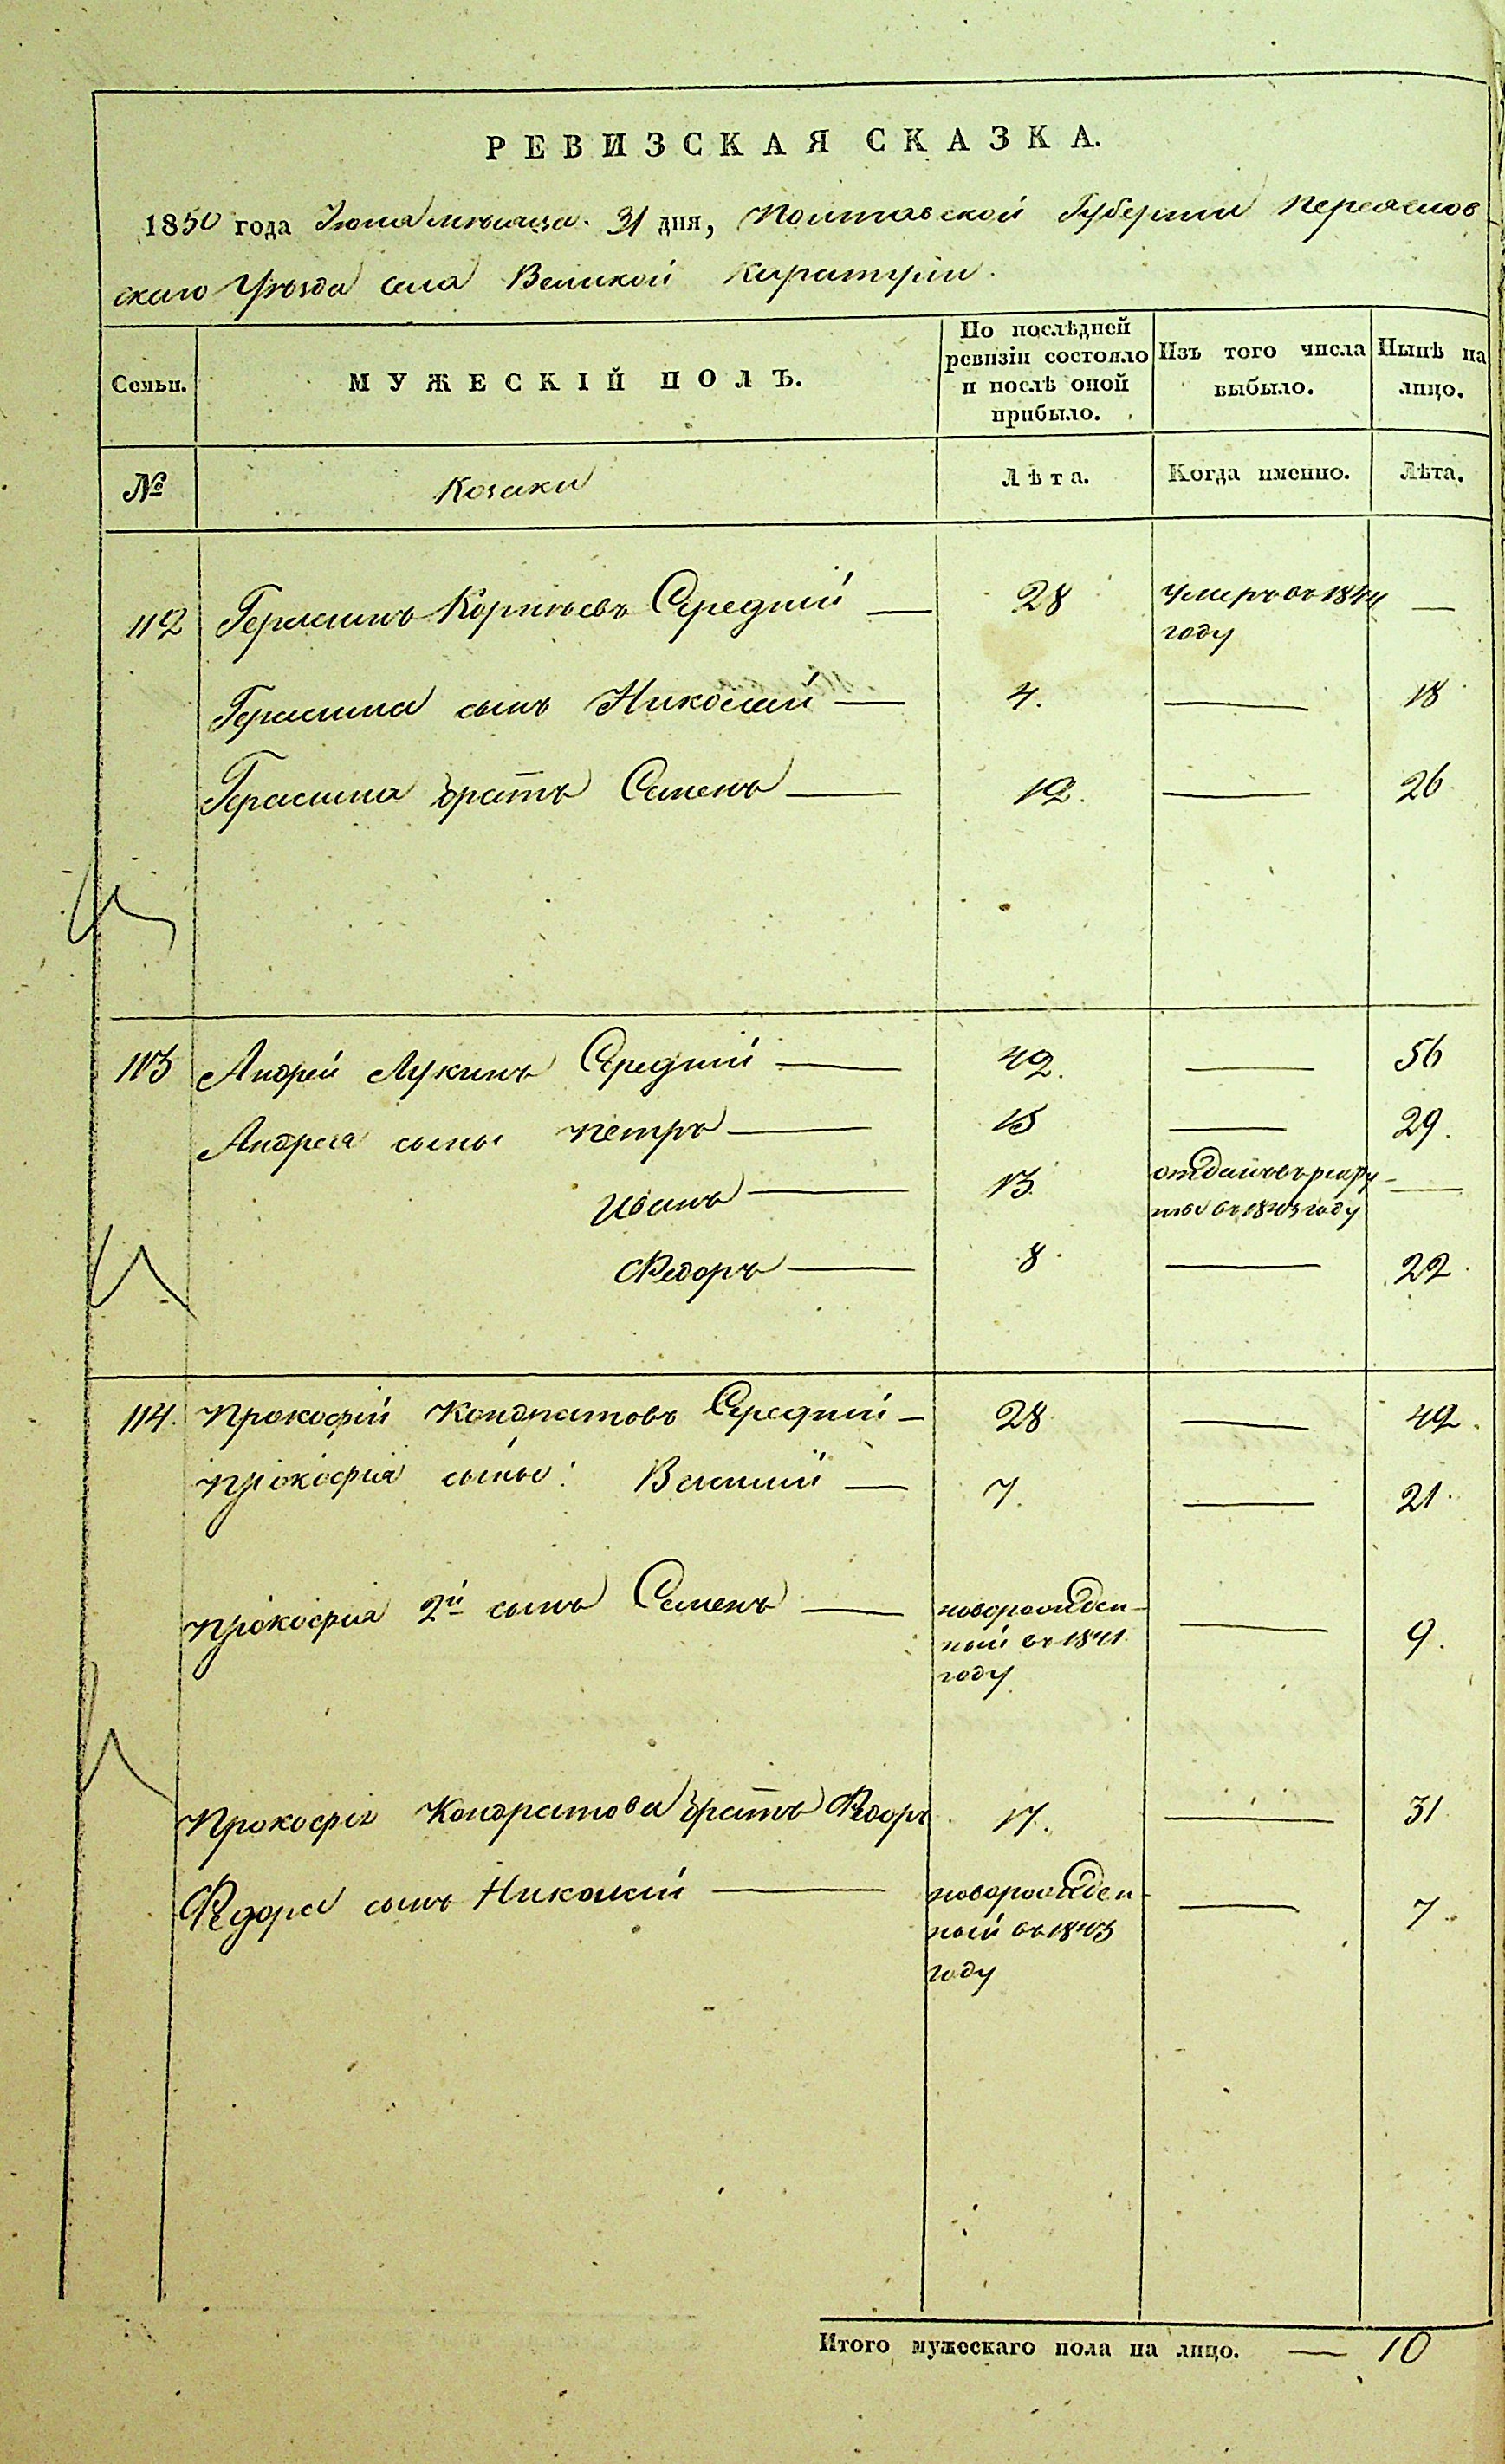 РЕВИЗСКАЯ СКАЗКА.
1850 года Іюля мѣсяца 31 дня, Полтавской Губерніи Переяслов
скаго Уѣзда села Великой Каратули.
Семьи. МУЖЕСКІЙ ПОЛЪ. По послѣдней ревизіи состояло и послѣ оной прибыло. Изъ того числа выбыло. Нынѣ на лицо.
№ Козаки Лѣта. Когда именно. Лѣта.
112 Герасимъ Корнѣевъ Середній — 28 умеръ въ 1844 году —
Герасима сынъ Николай — 4. — 18
Герасима братъ Семенъ — 12. — 26
113 Андрей Лукинъ Середній — 42. — 56
Андрея сыны Петръ — 15 — 29.
Иванъ — 13. отданъ въ рекруты въ 1843 году —
Федоръ — 8. — 22.
114. Прокофій Кондратовъ Середній — 28 — 42.
Прокофія сыны: Василій — 7. — 21.
Прокофія 2й сынъ Семенъ — новорожден-
ный въ 1841 году — 9.
Прокофія Кондратова братъ Федоръ 17. — 31
Федора сынъ Николай — новорожден-
ный въ 1843 году — 7.
Итого мужескаго пола на лицо. — 10